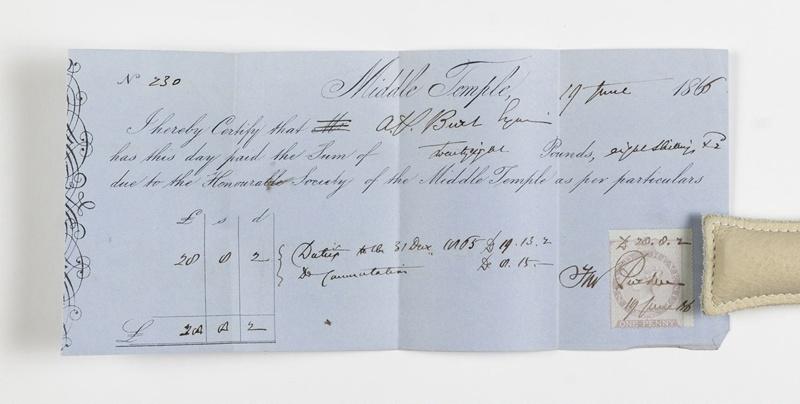 No 230 Middle Temple, 19 June 1866
I hereby Certify that Burt
has this day paid the Sum of twentyeight Pounds, eight shillings & 2
due to the Honourable Society of the Middle Temple as per particulars
£ s d
28 8 2 Duties to the 31 Dec. 1865 £ 19. 13. 2
Do Commutation £ 8. 15. —
£ 28 8 2
£ 28. 8. 2
19 June 66
ONE PENNY